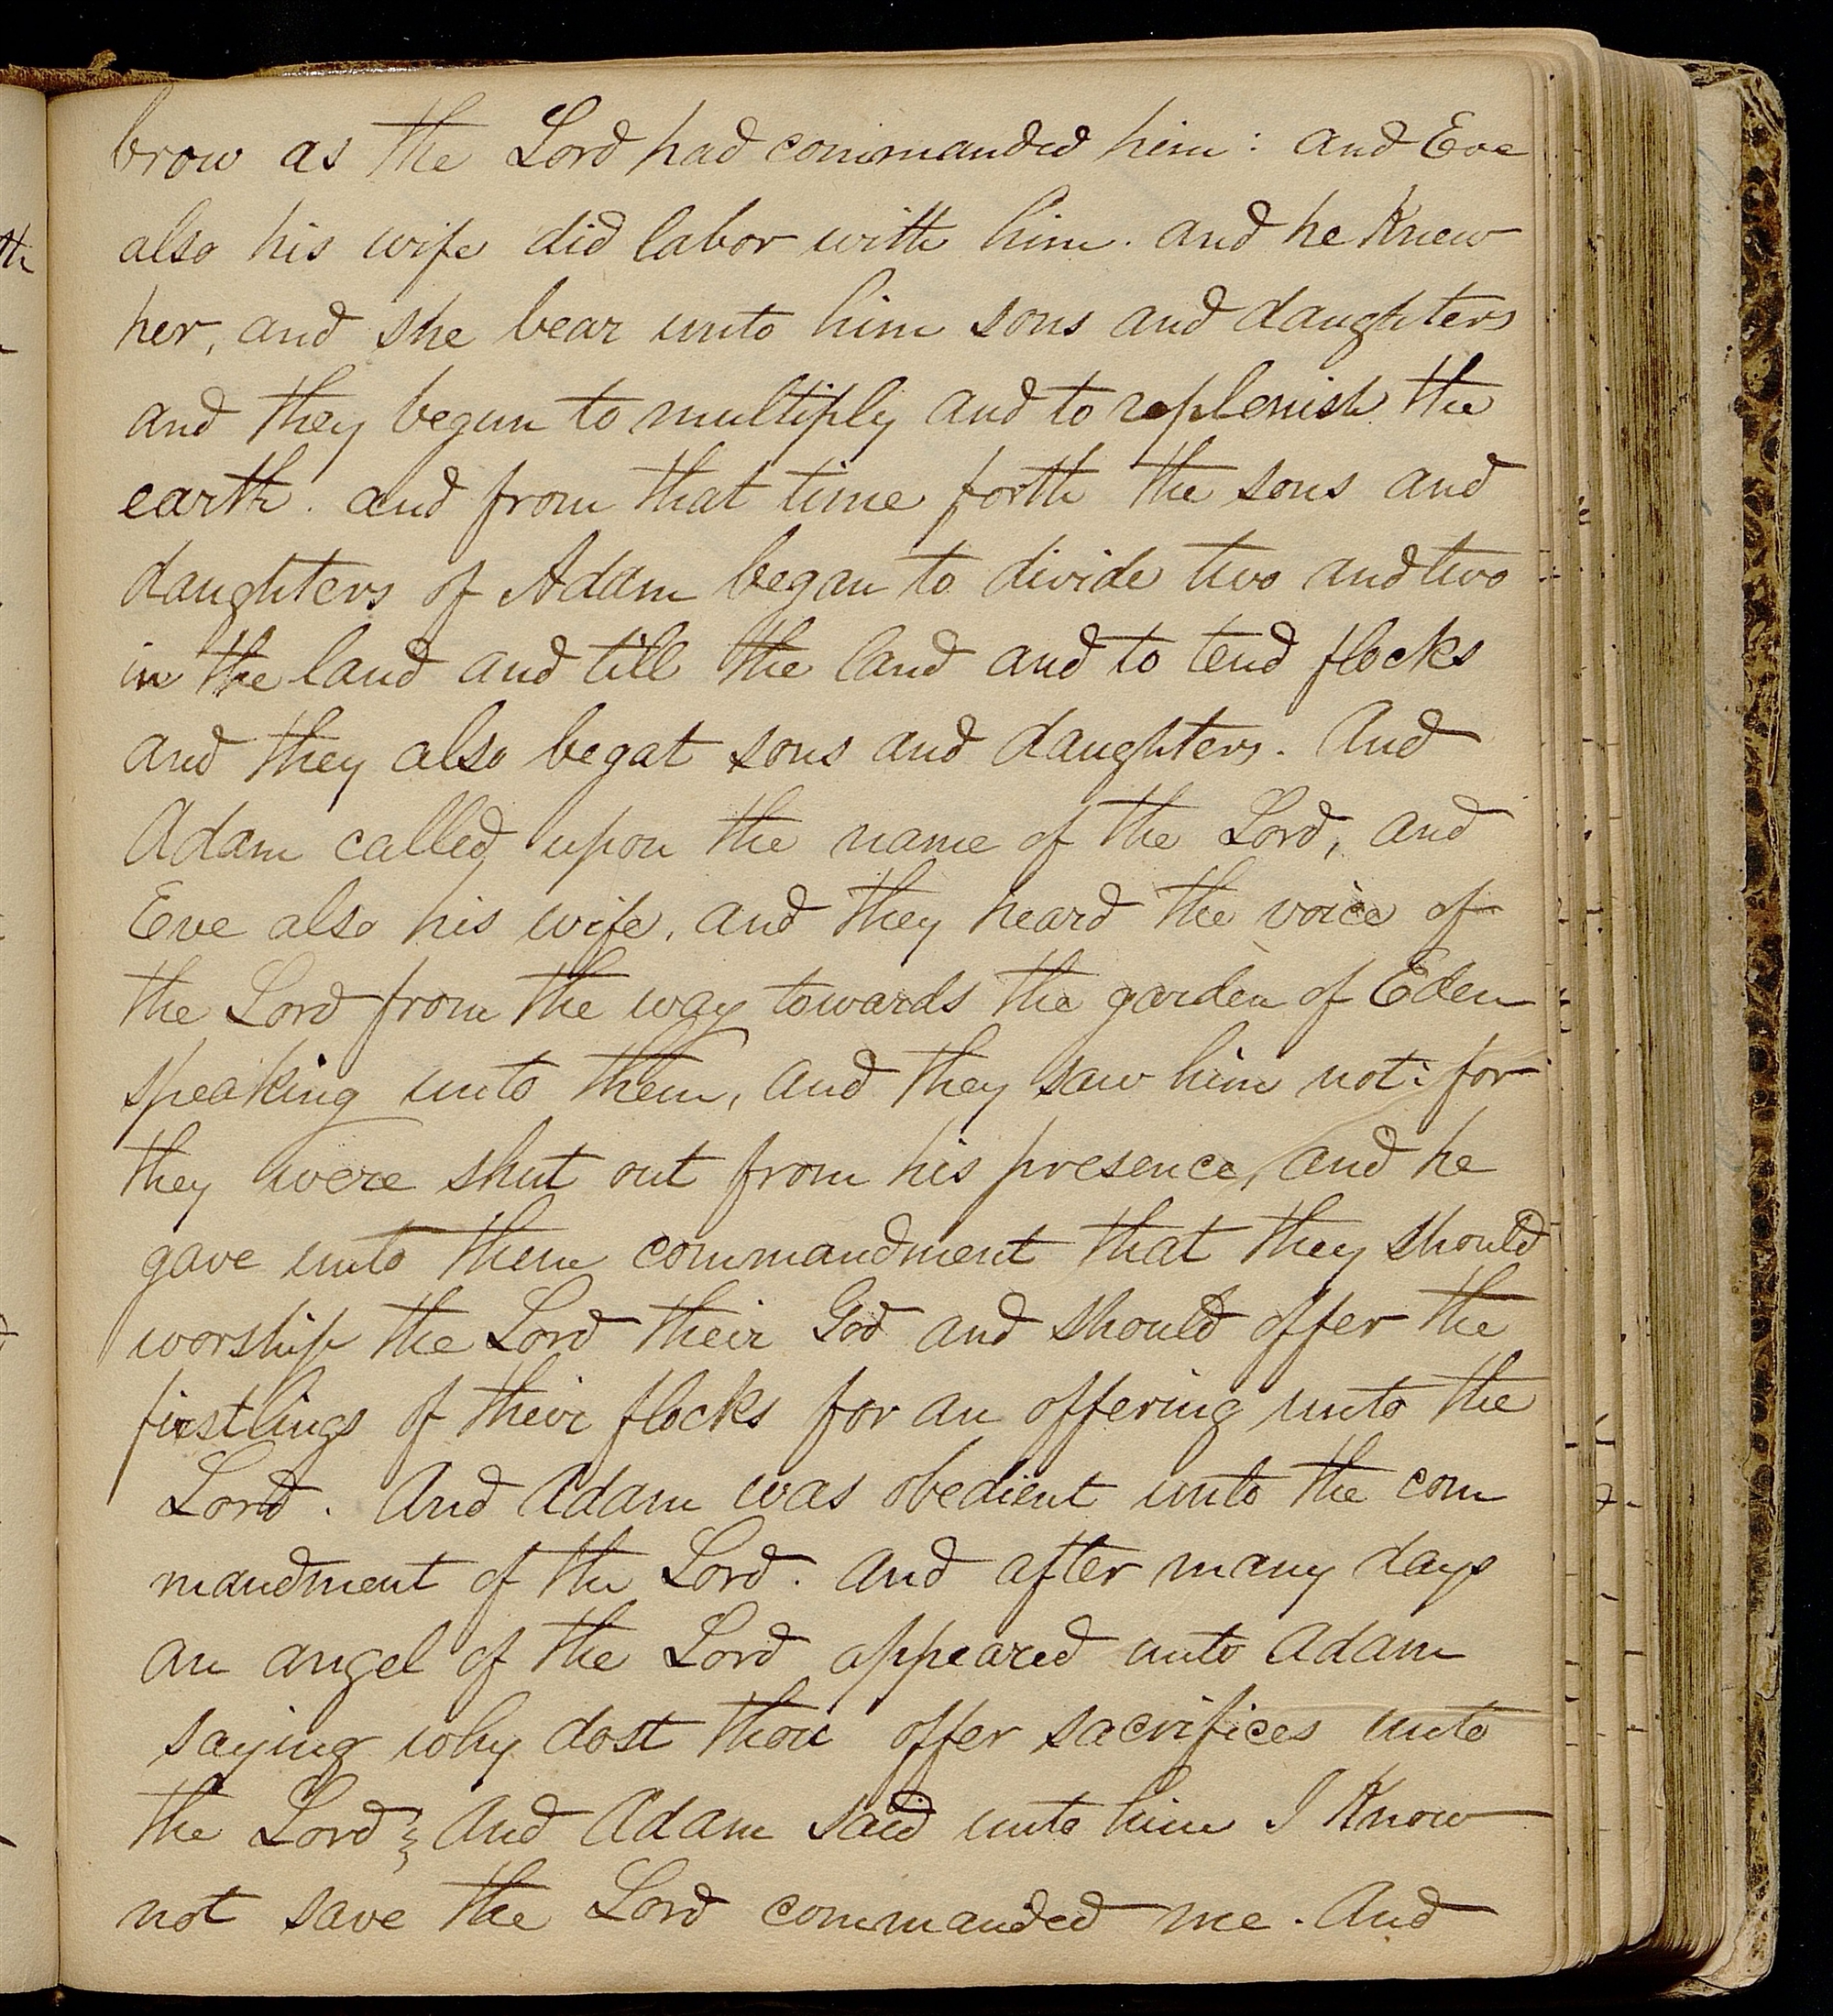 brow as the Lord had commanded him: and Eve
also his wife did labor with him. and he Knew
her, and she bear unto him sons and daughters
and they begun to multiply and to replenish the
earth. and from that time forth the sons and
daughters of Adam began to divide two and two
in the land and till the land and to tend flocks
and they also begat sons and daughters. And
Adam called upon the name of the Lord, and
Eve also his wife, and they heard the voice of
the Lord from the way towards the garden of Eden
speaking unto them, and they saw him not: for
they were shut out from his presence, and he
gave unto them commandment that they should
worship the Lord their God and should offer the
firstlings of their flocks for an offering unto the
Lord. And Adam was obedient unto the com
mandment of the Lord. and after many days
an angel of the Lord appeared unto Adam
saying why dost thou offer sacrifices unto
the Lord; And Adam said unto him I Know
not save the Lord commanded me. And